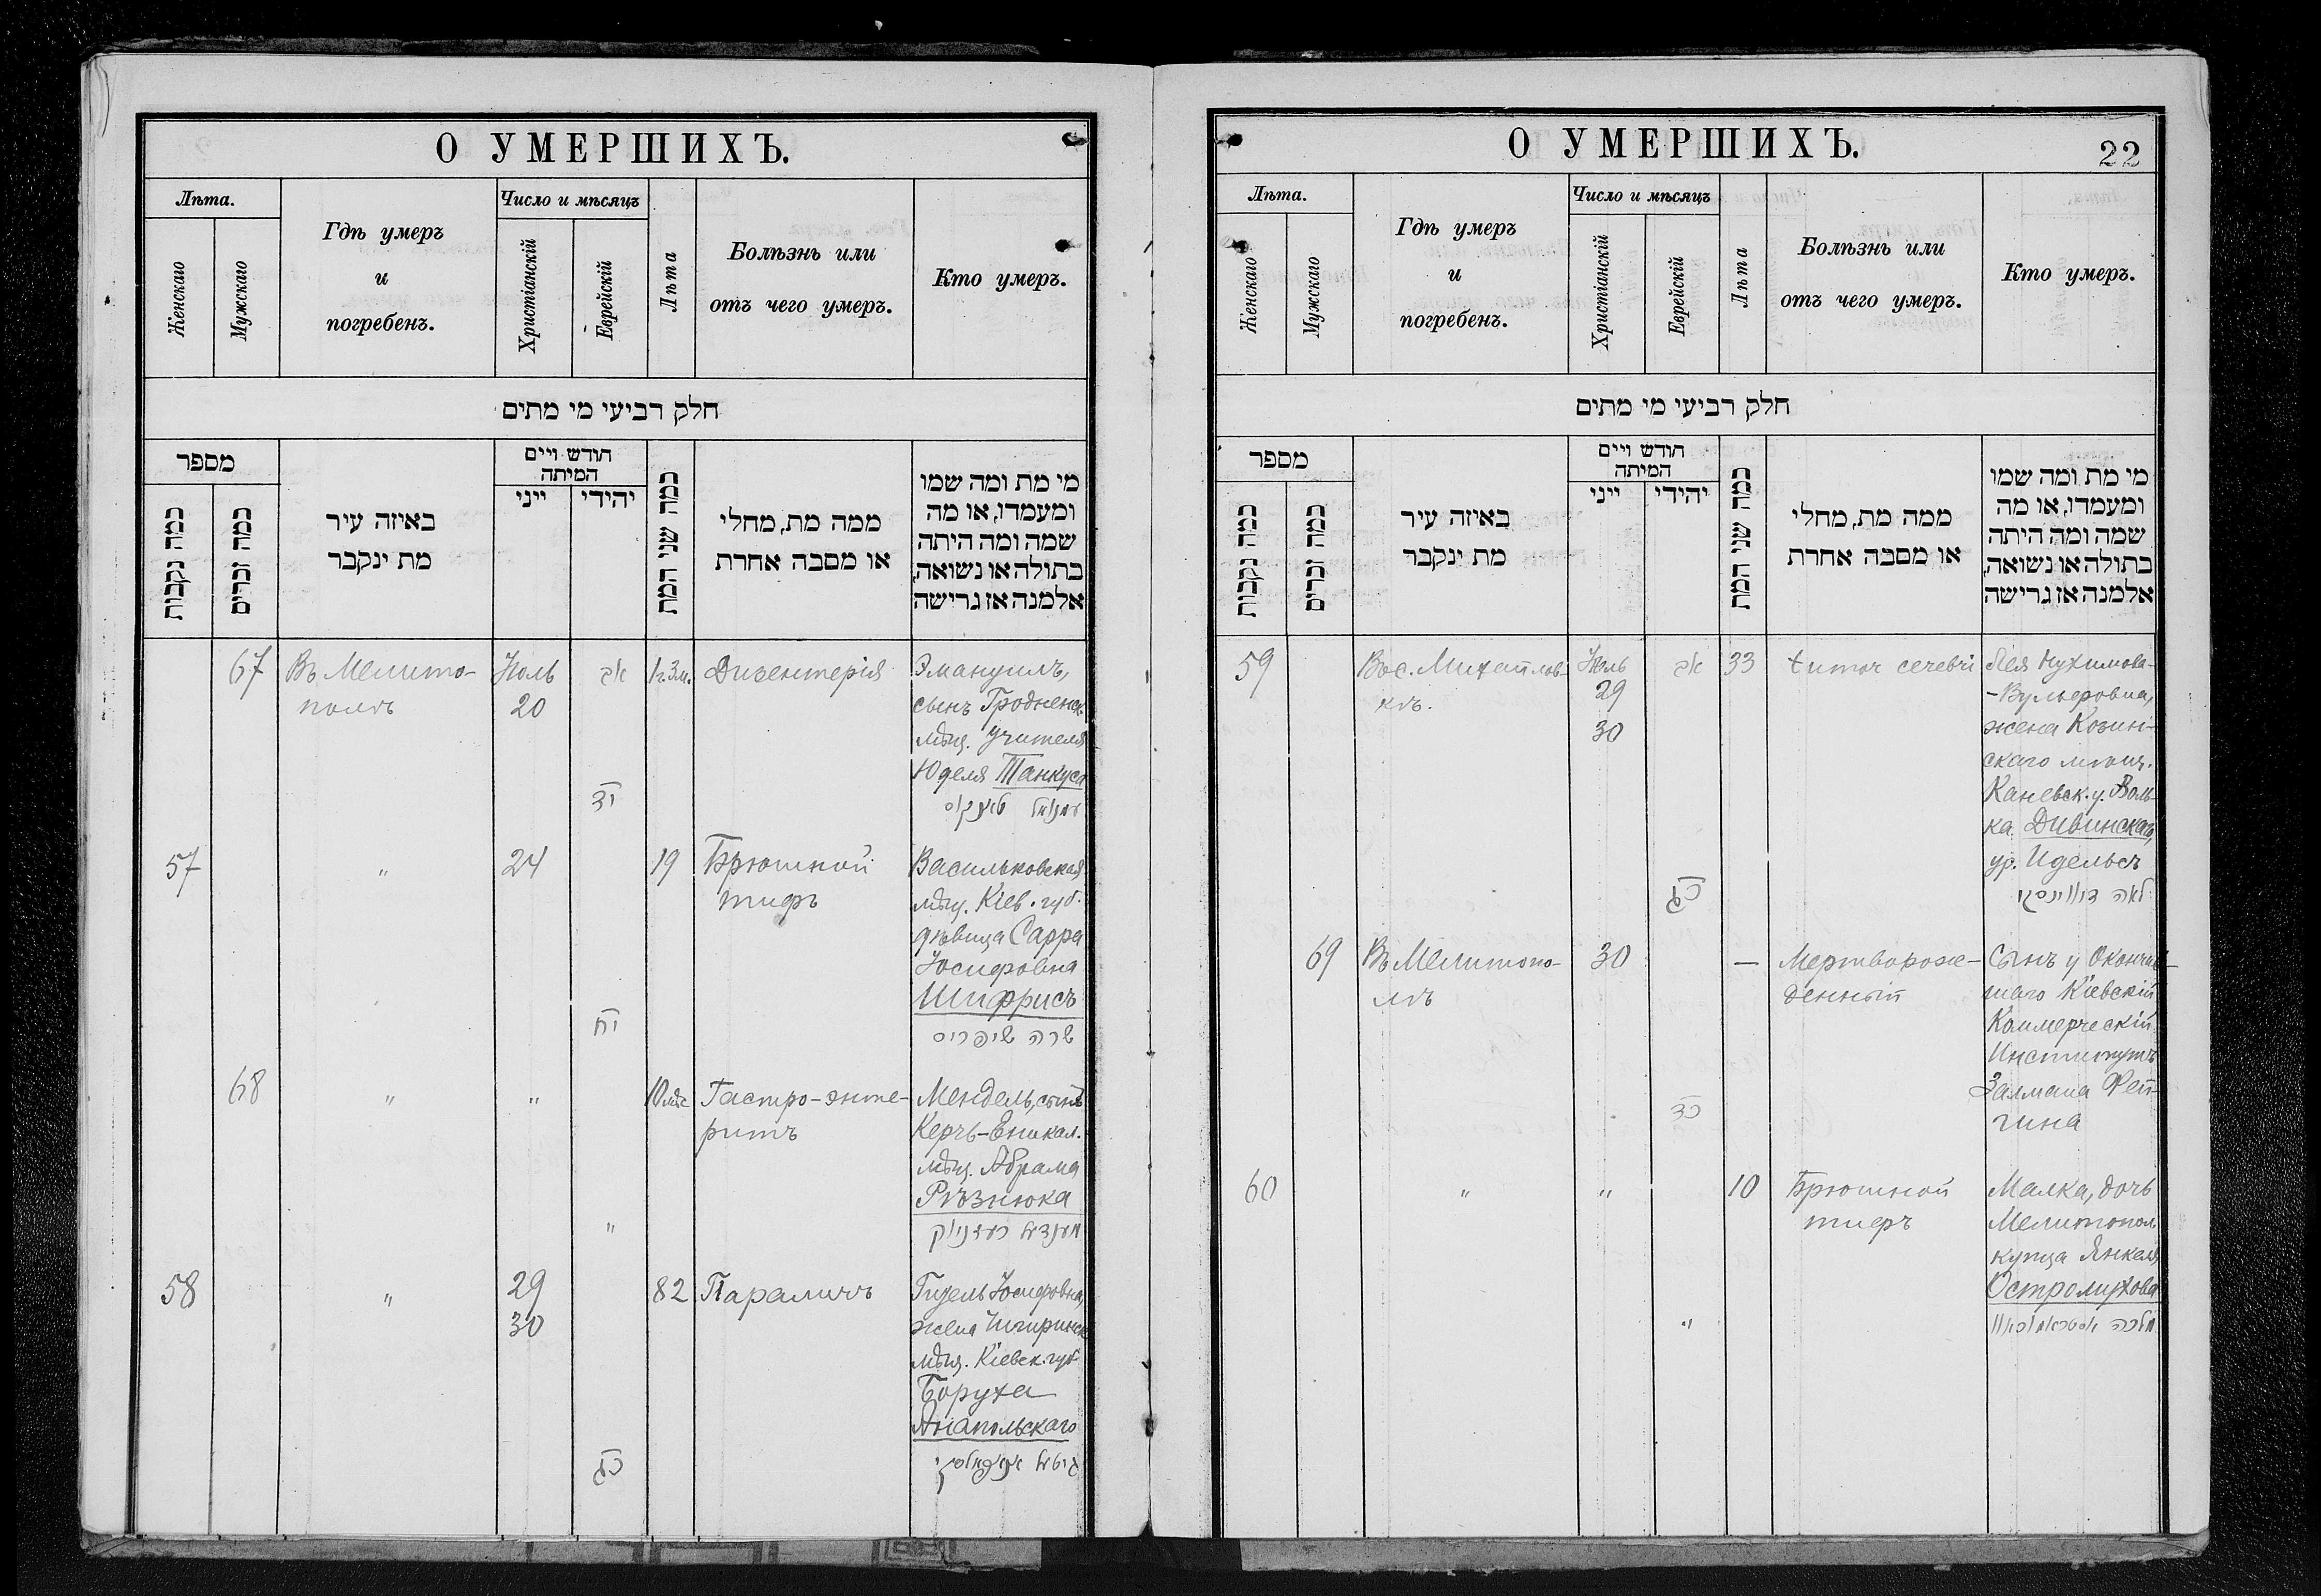 О УМЕРШИХЪ.
Лѣта.
Женскаго
Мужскаго
Гдѣ умеръ
и
погребенъ.
Число и мѣсяцъ
Христіанскій
Еврейскій
Лѣта
Болѣзнь или
отъ чего умеръ.
Кто умеръ.
חלק רביעי מי מתים
מספר
כמה נקבות
כמה זכרים
באיזה עיר
מת ינקבר
חודש ויים
המיתה
ייני
יהידי
כמה שני המת
ממה מת, מחלי
או מסבה אחרת
מי מת ומה שמו
ומעמדו, או מה
שמה ומה היתה
בתולה או נשואה,
אלמנה אז גרישה
67
Въ Мелито-
полѣ
Іюль
20
אב
יד
1г.3м.
Дизентерія
Эмануилъ,
сынъ Гродненск.
мѣщ. учителя
Юделя Танкуса
עמנואל טאנקוס
57
"
24
יח
19
Брюшной
тифъ
Васильковская
мѣщ. Кіев. губ.
дѣвица Сарра
Іосифовна
Шифрисъ
שרה שיפריס
68
"
"
"
10 мѣс
Гастро-энте-
ритъ
Мендель, сынъ
Керчь-Еникал.
мѣщ. Абрама
Рѣзнюка
מענדיל רעזניוק
58
"
29
30
כג
82
Параличъ
Іосифовна,
жена
мѣщ. Кіевск. губ.
Боруха
Анапольскаго
О УМЕРШИХЪ.
22
Лѣта.
Женскаго
Мужскаго
Гдѣ умеръ
и
погребенъ.
Число и мѣсяцъ
Христіанскій
Еврейскій
Лѣта
Болѣзнь или
отъ чего умеръ.
Кто умеръ.
חלק רביעי מי מתים
מספר
כמה נקבות
כמה זכרים
באיזה עיר
מת ינקבר
חודש ויים
המיתה
ייני
יהידי
כמה שני המת
ממה מת, מחלי
או מסבה אחרת
מי מת ומה שמו
ומעמדו, או מה
שמה ומה היתה
בתולה או נשואה,
אלמנה אז גרישה
59
Въ с. Михайлов-
кѣ.
Іюль
29
30
אב
כג
33
tumor cerebri
Лея Нухимова-
-Вульфовна,
жена Козин-
скаго мѣщ.
Каневск. у. Воль-
ка Дивинскаго,
ур. Идельсъ
לאה דיווינסקי
69
Въ Мелитопо-
лѣ
30
כד
—
Мертворож-
денный
Сынъ у окончив-
шаго Кіевскій
Коммерческій
Институтъ
Залмана Рей-
гина
60
"
"
"
10
Брюшной
тифъ
Малка, дочь
Мелитопол.
купца Янкеля
Остромухова
מלכה אסטראמוכאוו